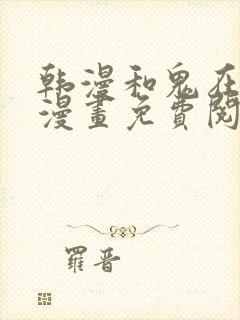 韩漫和鬼在
漫畫免費閱
羅晋